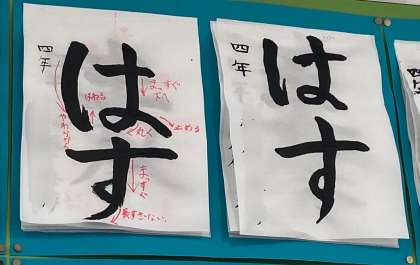 はす
四年
まっすぐ
下へ
はねる
やわらかく
丸く
止める
まっすぐ
長すぎない
はす
四年